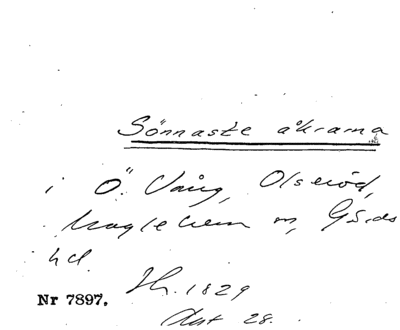 Sönnaste åkrarna
i Ö. Vång, Olseröd,
Maglehem sn, Gärds
hd.
Nr 7897.
Sk. 1829
Akt 28.